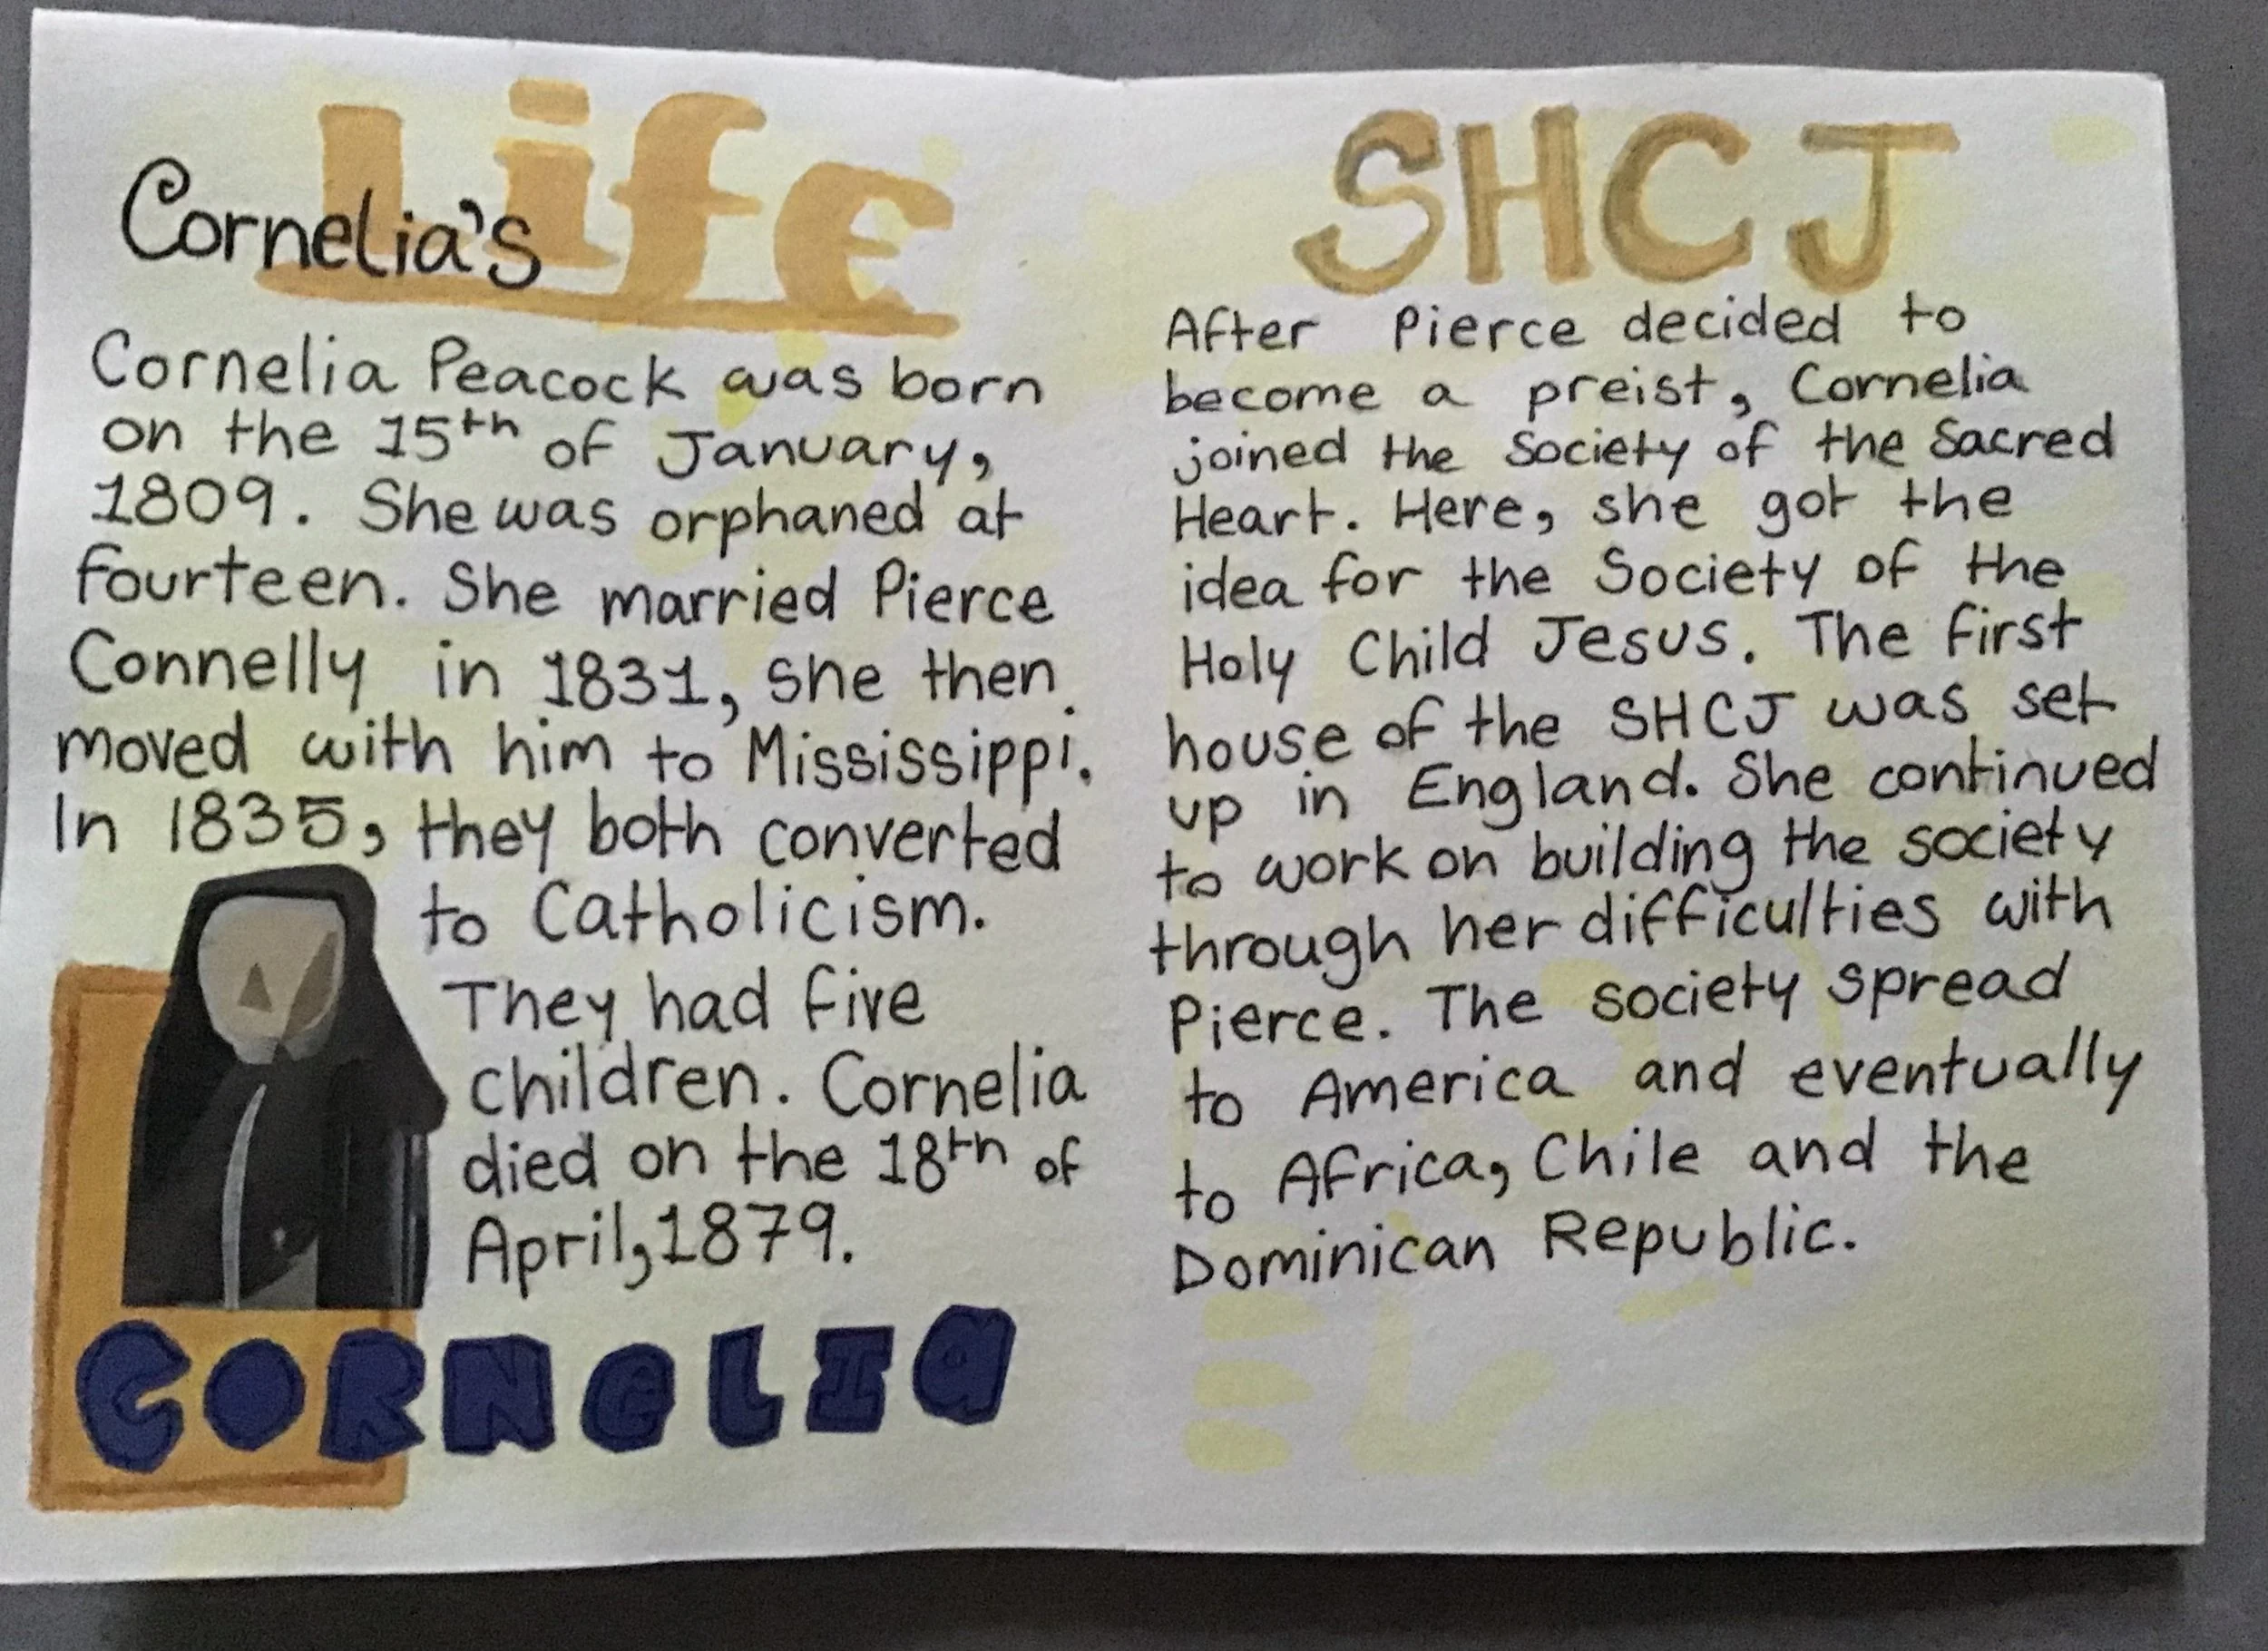 Life
Cornelia's
Cornelia Peacock was born
on the 15th of January,
1809. She was orphaned at
fourteen. She married Pierce
Connelly in 1831, she then
moved with him to Mississippi.
In 1835, they both converted
to Catholicism.
They had five
children. Cornelia
died on the 18th of
April, 1879.
CORNELIA
SHCJ
After Pierce decided to
become a preist, Cornelia
joined the Society of the Sacred
Heart. Here, she got the
idea for the Society of the
Holy Child Jesus. The first
house of the SHCJ was set
up in England. She continued
to work on building the society
through her difficulties with
Pierce. The society spread
to America and eventually
to Africa, Chile and the
Dominican Republic.